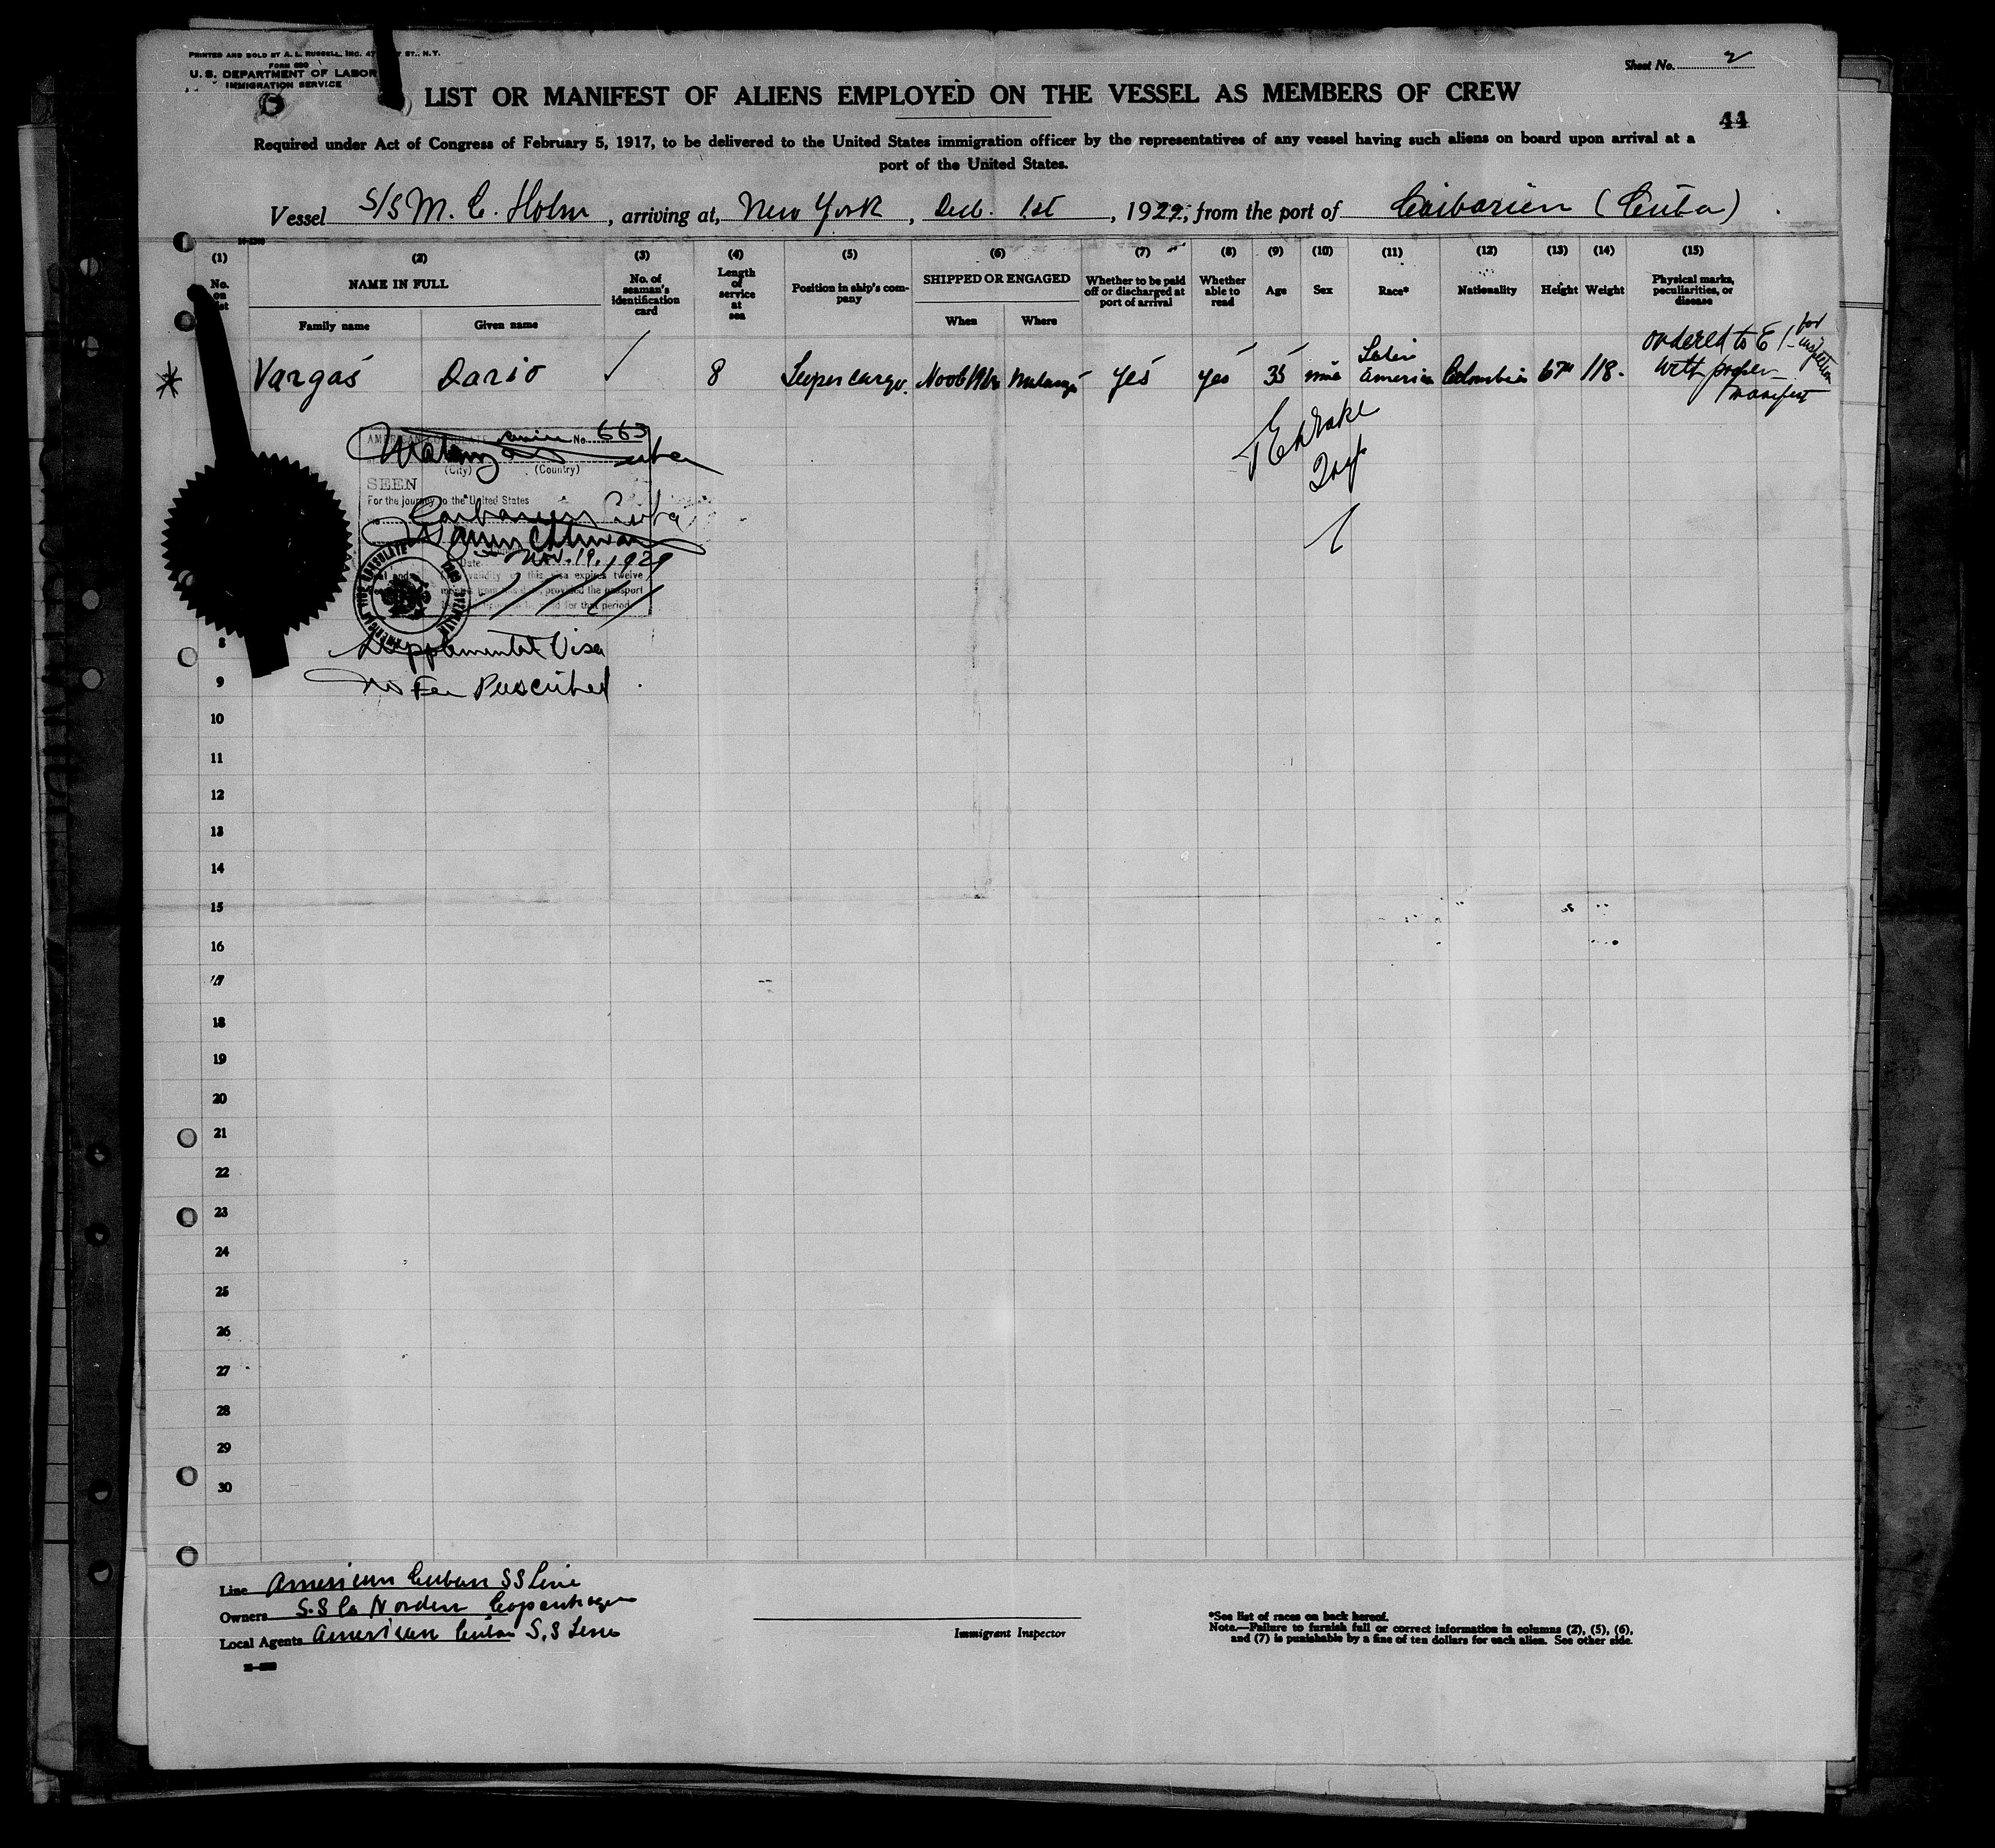 PRINTED AND SOLD BY A. L. RUSSELL, INC. 47 ST., N.Y.
FORM 680
U. S. DEPARTMENT OF LABOR
IMMIGRATION SERVICE
Sheet No. 2
LIST OR MANIFEST OF ALIENS EMPLOYED ON THE VESSEL AS MEMBERS OF CREW
44
Required under Act of Congress of February 5, 1917, to be delivered to the United States immigration officer by the representatives of any vessel having such aliens on board upon arrival at a
port of the United States.
Vessel S/S M. C. Holm, arriving at, New York, Dec. 1st, 1922, from the port of Caibarien (Cuba)
(1) (2) (3) (4) (5) (6) (7) (8) (9) (10) (11) (12) (13) (14) (15)
No. on list
NAME IN FULL
Family name
Given name
No. of seaman's identification card
Length of service at sea
Position in ship's company
SHIPPED OR ENGAGED
When
Where
Whether to be paid off or discharged at port of arrival
Whether able to read
Age
Sex
Race*
Nationality
Height
Weight
Physical marks, peculiarities, or disease
Vargas Dario 8 Supercargo. yes yes 35 Latin America Colombia 118.
ordered to E I for inspection
with proper
manifest
AMERICAN CONSULATE No. 663
Matanzas Cuba
(City) (Country)
SEEN
For the journey to the United States
via Caibarien Cuba
Date Nov. 19, 1922
validity of this visa expires twelve
months from this date, provided the passport
for that period
AMERICAN VICE CONSULATE
Supplemental Visa
No Fee Prescribed
8
9
10
11
12
13
14
15
16
17
18
19
20
21
22
23
24
25
26
27
28
29
30
Line American Cuban SS Line
Owners S.S Co Norden Copenhagen
Local Agents American Cuban S.S Line
Immigrant Inspector
*See list of races on back hereof.
Note.—Failure to furnish full or correct information in columns (2), (5), (6),
and (7) is punishable by a fine of ten dollars for each alien. See other side.